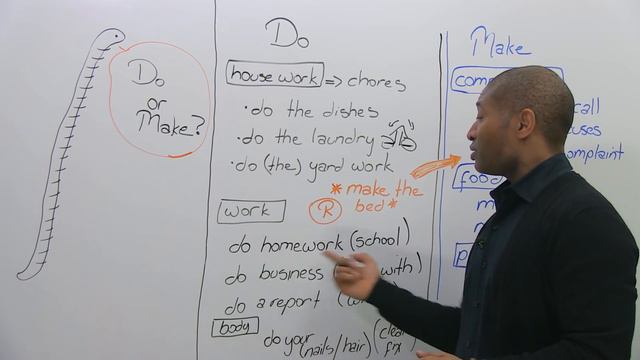 Do
or
Make?
Do
house work => chores
• do the dishes
• do the laundry
• do (the) yard work
* make the
bed *
work
R
do homework (school)
do business with)
do a report
body
do your (nails/hair) (clean
fix
Make
call
complaint
food